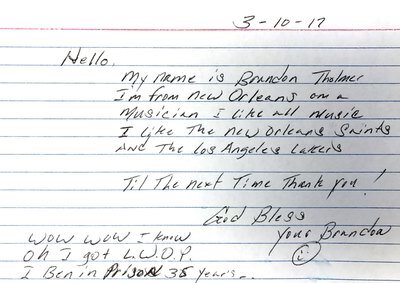 3-10-17
Hello.
My name is Brandon Tholmer
I'm from new Orleans am a
Musician I like all music
I like The new Orleans Saints
AND The Los Angeles Lakers
Til The next Time Thank you!
God Bless
Your Brandon
WOW WOW I know
Oh I got L.W.O.P.
I Ben in Prison 35 years..